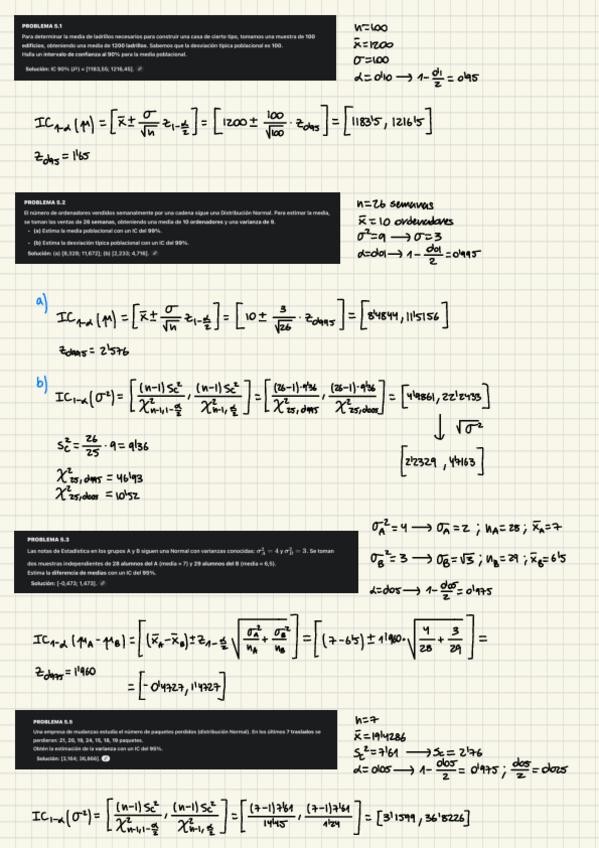 PROBLEMA 5.1
Para determinar la media de ladrillos necesarios para construir una casa de cierto tipo, tomamos una muestra de 100
edificios, obteniendo una media de 1200 ladrillos. Sabemos que la desviación típica poblacional es 100.
Halla un intervalo de confianza al 90% para la media poblacional.
Solución: IC 90% (μ) = [1183,55; 1216,45].
n=100
x̄=1200
σ=100
α=0'10 → 1-0'1/2=0'95
IC₁₋α(μ) = [x̄ ± σ/√n z₁₋α/2] = [1200 ± 100/√100 · z0'95] = [1183'5, 1216'5]
z0'95 = 1'65
PROBLEMA 5.2
El número de ordenadores vendidos semanalmente por una cadena sigue una Distribución Normal. Para estimar la media,
se toman las ventas de 26 semanas, obteniendo una media de 10 ordenadores y una varianza de 9.
• (a) Estima la media poblacional con un IC del 99%.
• (b) Estima la desviación típica poblacional con un IC del 99%.
Solución: (a) [8,328; 11,672]; (b) [2,233; 4,716].
n=26 semanas
x̄=10 ordenadores
σ²=9 → σ=3
α=0'01 → 1-0'01/2=0'995
a) IC₁₋α(μ) = [x̄ ± σ/√n z₁₋α/2] = [10 ± 3/√26 · z0'995] = [8'4844, 11'5156]
z0'995 = 2'576
b) IC₁₋α(σ²) = [(n-1)Sc²/χ²n-1,1-α/2, (n-1)Sc²/χ²n-1,α/2] = [(26-1)·9'36/χ²25,0'995, (26-1)·9'36/χ²25,0'005] = [4'9861, 22'2433]
↓ √σ²
[2'2329, 4'7163]
Sc²=26/25 · 9 = 9'36
χ²25,0'995 = 46'93
χ²25,0'005 = 10'52
PROBLEMA 5.3
Las notas de Estadística en los grupos A y B siguen una Normal con varianzas conocidas: σ²A = 4 y σ²B = 3. Se toman
dos muestras independientes de 28 alumnos del A (media = 7) y 29 alumnos del B (media = 6,5).
Estima la diferencia de medias con un IC del 95%.
Solución: [-0,473; 1,473].
σA²=4 → σA=2 ; nA=28 ; x̄A=7
σB²=3 → σB=√3 ; nB=29 ; x̄B=6'5
α=0'05 → 1-0'05/2=0'975
IC₁₋α(μA-μB) = [(x̄A-x̄B) ± z₁₋α/2 √(σA²/nA + σB²/nB)] = [(7-6'5) ± 1'960·√(4/28 + 3/29)] =
z0'975 = 1'960
= [-0'4727, 1'4727]
PROBLEMA 5.5
Una empresa de mudanzas estudia el número de paquetes perdidos (distribución Normal). En los últimos 7 traslados se
perdieron: 21, 20, 19, 24, 15, 18, 19 paquetes.
Obtén la estimación de la varianza con un IC del 95%.
Solución: [3,164; 36,866].
n=7
x̄=19'4286
Sc²=7'61 → Sc=2'76
α=0'05 → 1-0'05/2=0'975 ; 0'05/2=0'025
IC₁₋α(σ²) = [(n-1)Sc²/χ²n-1,1-α/2, (n-1)Sc²/χ²n-1,α/2] = [(7-1)7'61/14'45, (7-1)7'61/1'24] = [3'1599, 36'8226]